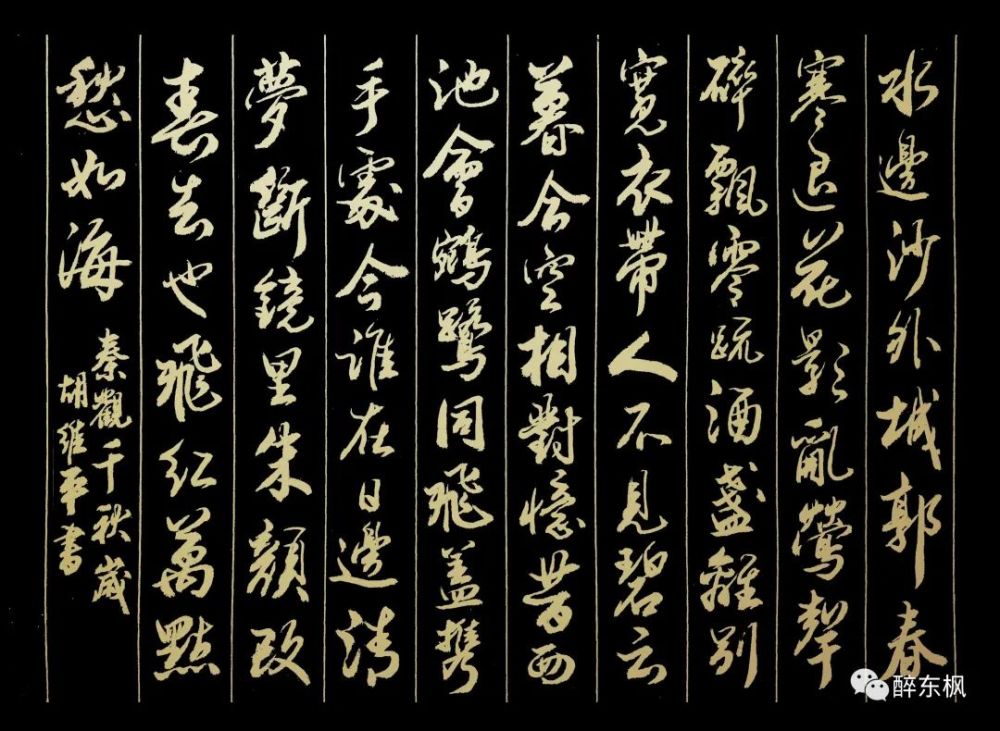 水邊沙外城郭春
寒退花影亂鶯聲
碎飄零疏酒盞離別
寬衣帶人不見碧云
暮合空相對憶昔西
池會鵷鷺同飛盖攜
手處今誰在日邊清
夢斷鏡里朱顏改
春去也飛紅萬點
愁如海
秦觀千秋歲
胡維平書
醉东枫